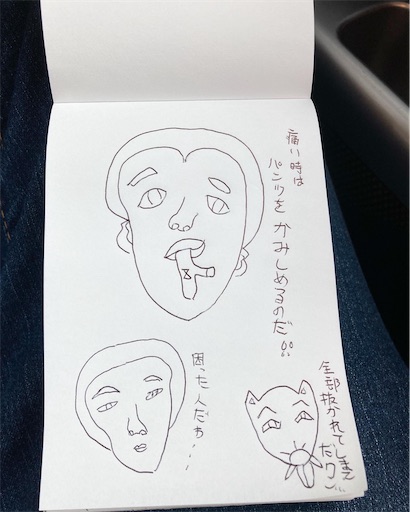 痛い時は
パンツを かみしめるのだ!!
困った人だち...
全部抜かれてしまえ
だワン...